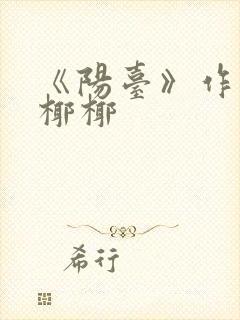 《陽臺》作
椰椰
希行